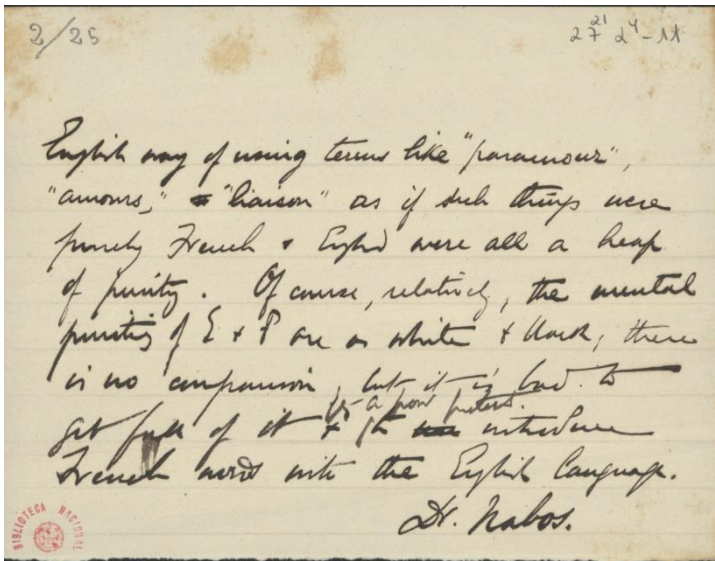 2/25
21
27 24-11
English way of using terms like "paramour",
"amours," "liaison" as if such things were
purely French & English were all a heap
of purity. Of course, relatively, the mental
purities of E & F are as white & black; there
is no comparison, but it is bad to
is a poor pretext.
get full of it & to introduce
French words into the English language.
Dr. Nabos.
BIBLIOTECA NACIONAL